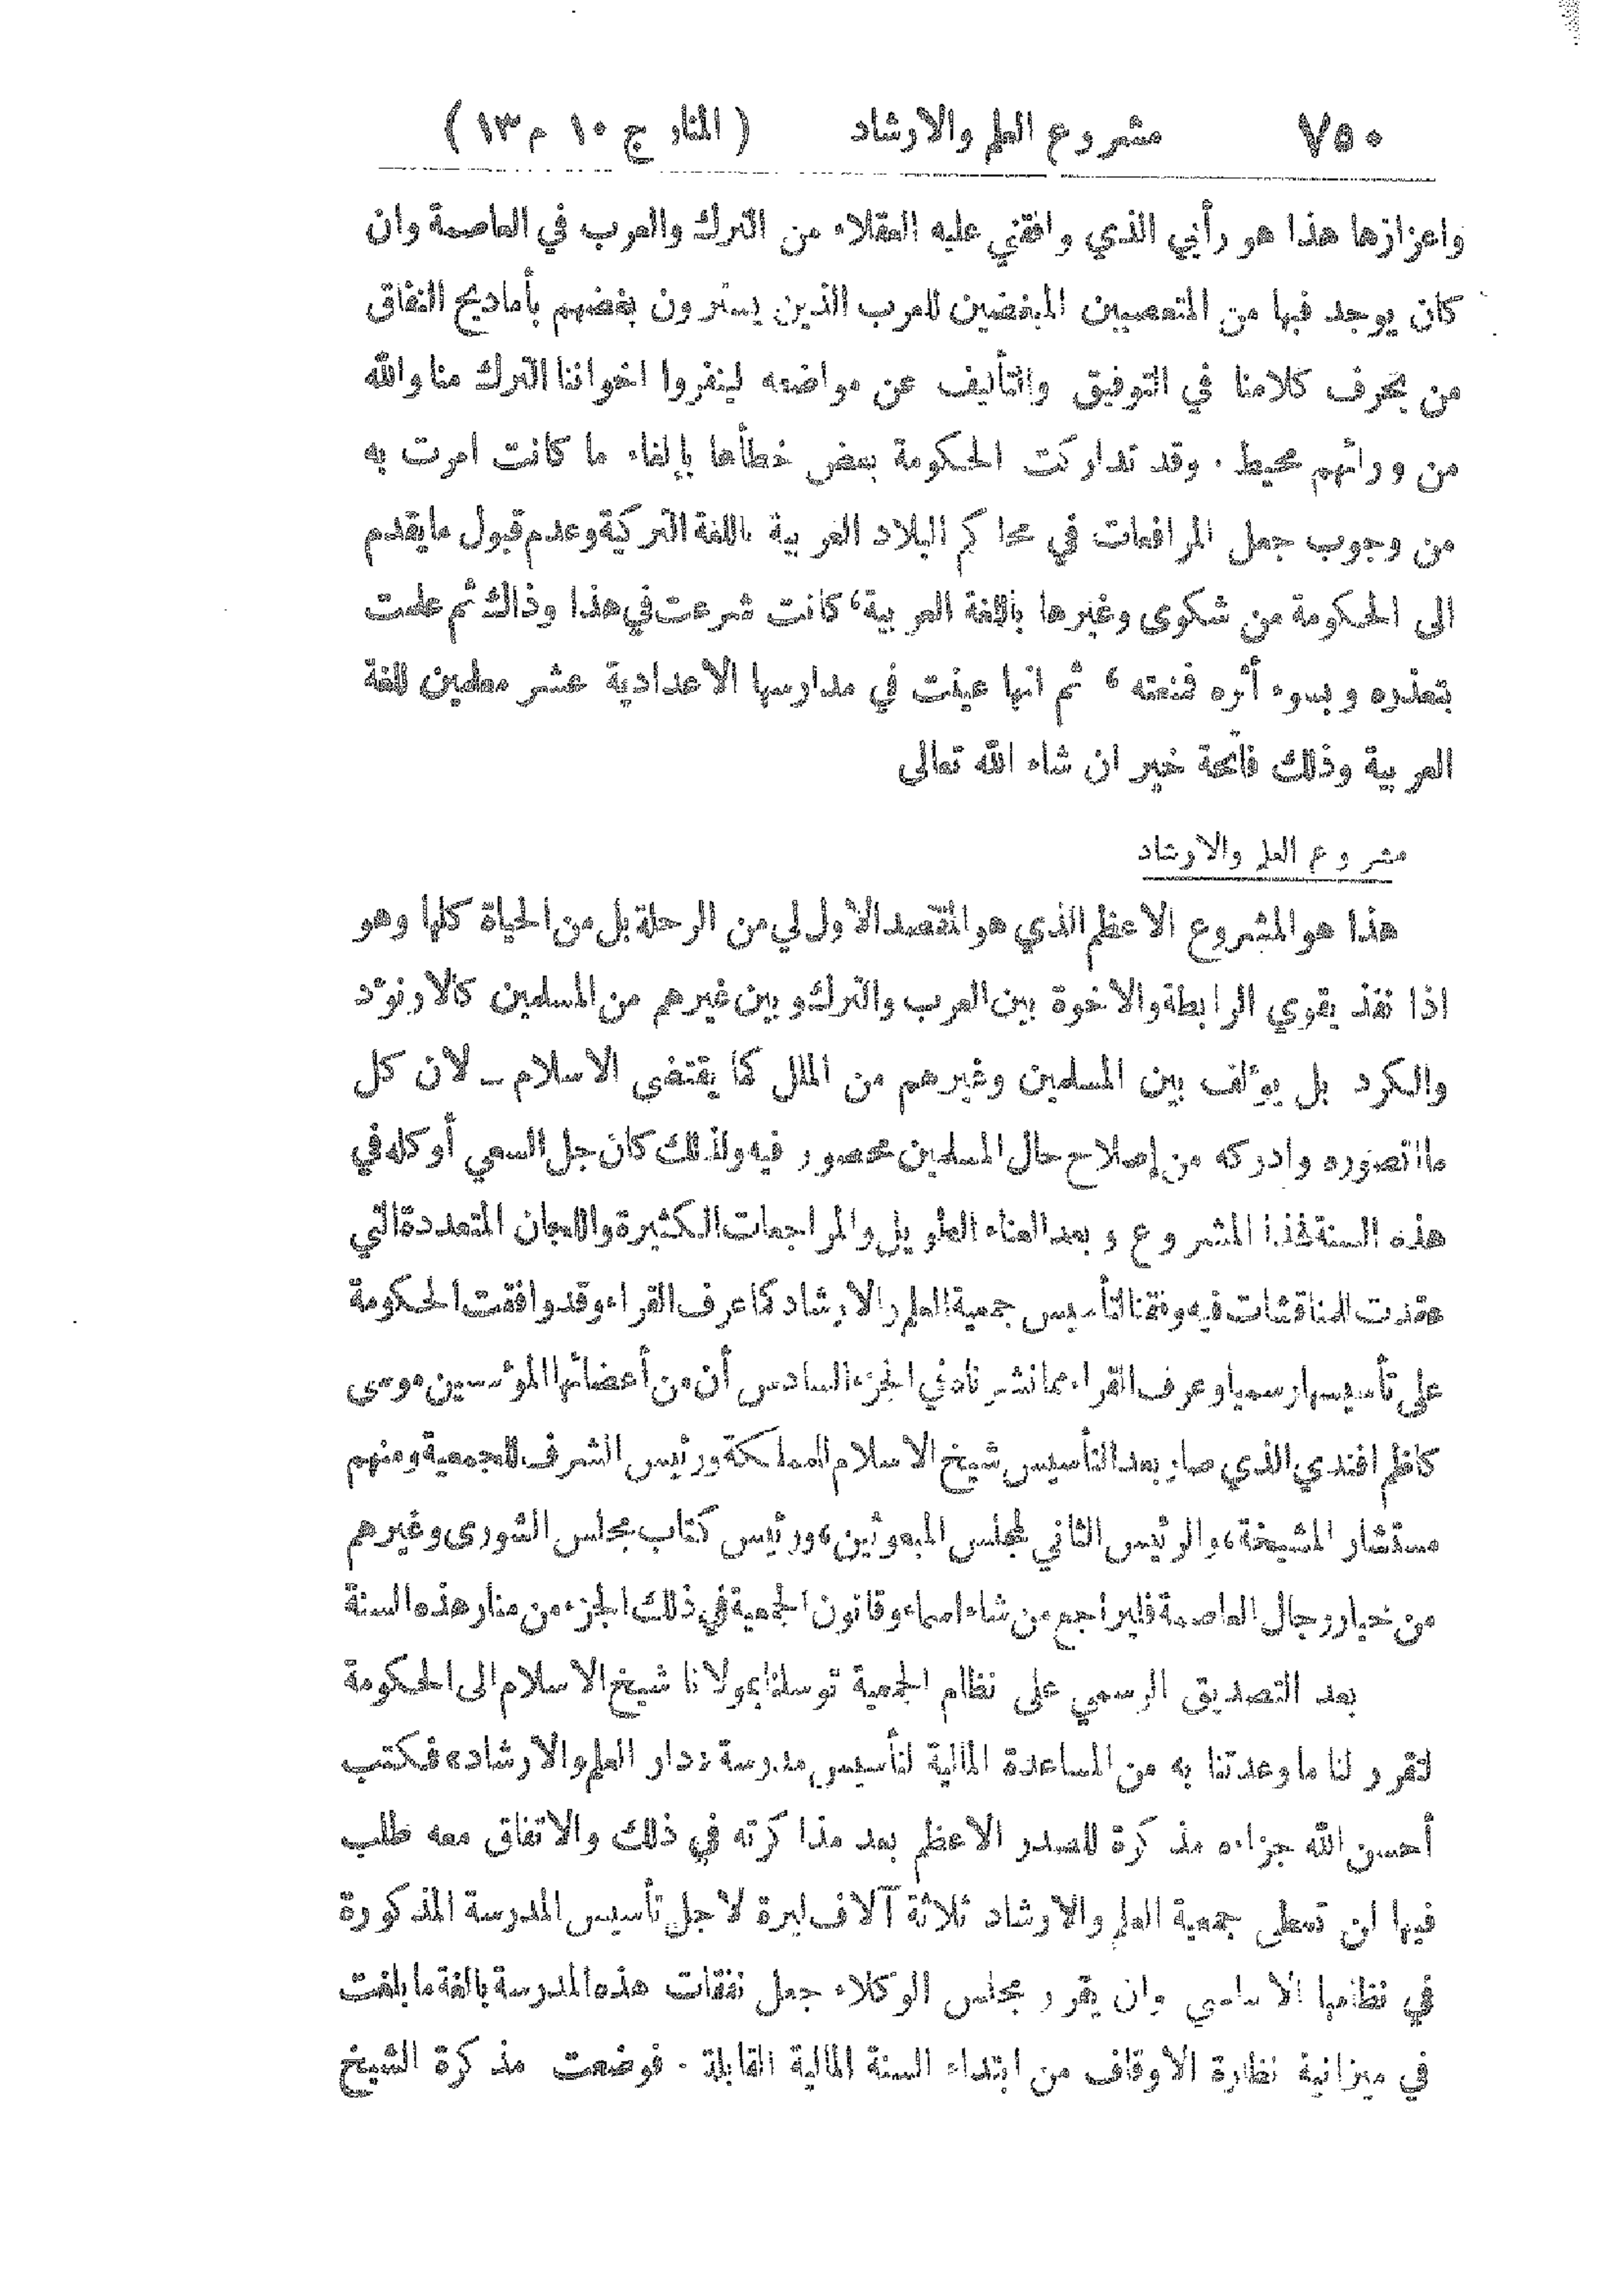 ٧٥٠ مشروع العلم والارشاد ( المنار ج ١٠ م ١٣ )
واعزازها هذا هو رأيي الذي وافقني عليه العقلاء من الترك والعرب في العاصمة وان
كان يوجد فيها من المتعصبين المبغضين للعرب الذين يسترون بغضهم بأماديح النفاق
من يحرف كلامنا في التوفيق والتأليف عن مواضعه لينفروا اخواننا الترك منا والله
من ورائهم محيط . وقد تداركت الحكومة بعض خطأها بإلغاء ما كانت امرت به
من وجوب جعل المرافعات في محاكم البلاد العربية باللغة التركية وعدم قبول ما يقدم
الى الحكومة من شكوى وغيرها باللغة العربية، كانت شرعت في هذا وذاك ثم علمت
بتعذره وبسوء أثره فمنعته ، ثم انها عينت في مدارسها الاعدادية عشر معلمين للغة
العربية وذلك فاتحة خير ان شاء الله تعالى
مشروع العلم والارشاد
هذا هو المشروع الاعظم الذي هو المقصد الاول لي من الرحلة بل من الحياة كلها وهو
اذا نفذ يقوي الرابطة والاخوة بين العرب والترك وبين غيرهم من المسلمين كالارنؤد
والكرد بل يؤلف بين المسلمين وغيرهم من الملل كما يقتضي الاسلام ــ لان كل
ما اتصوره وادركه من إصلاح حال المسلمين محصور فيه ولذلك كان جل السعي أو كله في
هذه السنة لهذا المشروع وبعد العناء الطويل والمراجعات الكثيرة واللجان المتعددة التي
عقدت للمناقشات فيه وفقنا لتأسيس جمعية العلم والارشاد كما عرف القراء وقد وافقت الحكومة
على تأسيسها رسميا وعرف القراء مما نشرناه في الجزء السادس أن من أعضائها المؤسسين موسى
كاظم افندي الذي صار بعد التأسيس شيخ الاسلام للمملكة ورئيس الشرف للجمعية ومنهم
مستشار المشيخة، والرئيس الثاني لمجلس المبعوثين، ورئيس كتاب مجلس الشورى وغيرهم
من خيار رجال العاصمة فليراجع من شاء اسماء وقانون الجمعية في ذلك الجزء من منار هذه السنة
بعد التصديق الرسمي على نظام الجمعية توسلنا بمولانا شيخ الاسلام الى الحكومة
لتقرر لنا ما وعدتنا به من المساعدة المالية لتأسيس مدرسة «دار العلم والارشاد» فكتب
أحسن الله جزاءه مذكرة للصدر الاعظم بعد مذاكرته في ذلك والاتفاق معه طلب
فيها ان تعطى جمعية العلم والارشاد ثلاثة آلاف ليرة لاجل تأسيس المدرسة المذكورة
في نظامها الاساسي وان يقرر مجلس الوكلاء جعل نفقات هذه المدرسة بالغة ما بلغت
في ميزانية نظارة الاوقاف من ابتداء السنة المالية القابلة . فوضعت مذكرة الشيخ